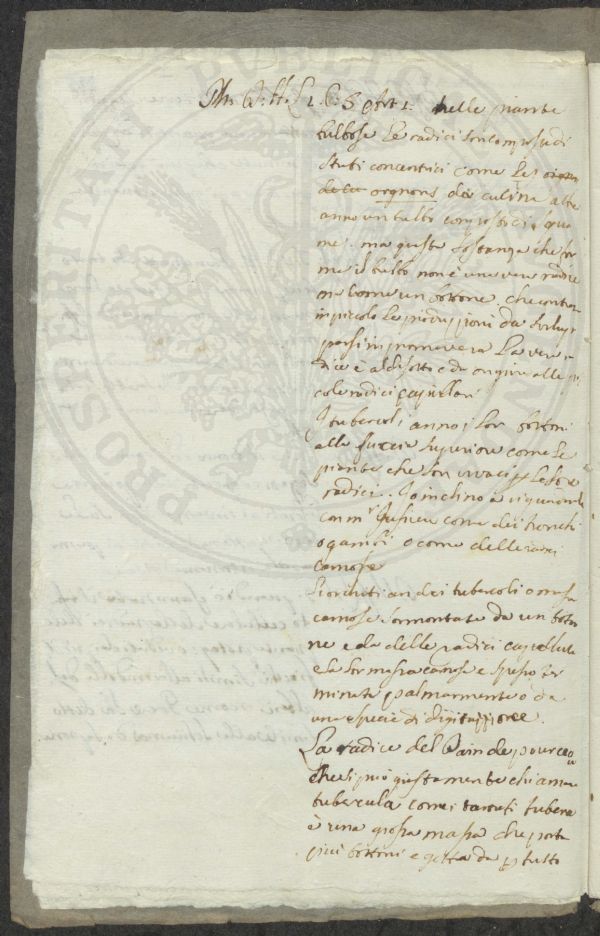 Th. l. 1. C. 3 Art 1. nelle piante
bulbose le radici son composte di
strati concentici come les
orgnons dei culina altre
anno un bulbo composto di squa
me. ma questa sostanza che for
ma il bulbo non è una vera radice
ma come un bottone, che contien
in piccolo le produzzioni da svilup
parsi in primavera La vera ra
dice è al disotto e da origine alle pi
cole radici capillari
I tubercoli anno i lor bottoni
alla faccia superiore come le
piante che son vivaci p le loro
radici. Io inclino a riguardarle
con mr Jussieu come dei tronchi
o gambi o come delle radici
carnose
Gior dei tubercoli o massa
carnose sormontate da un boto
ne e da delle radici capellute
e la lor massa carnosa e spesso ter
minata palmarmente o da
una specie di digitazzione.
La radice del Pain de pourceau
che si può giustamente chiamare
tubercula come i tartufi tubera
è una grossa massa che porta
più bottoni e getta da p tutto